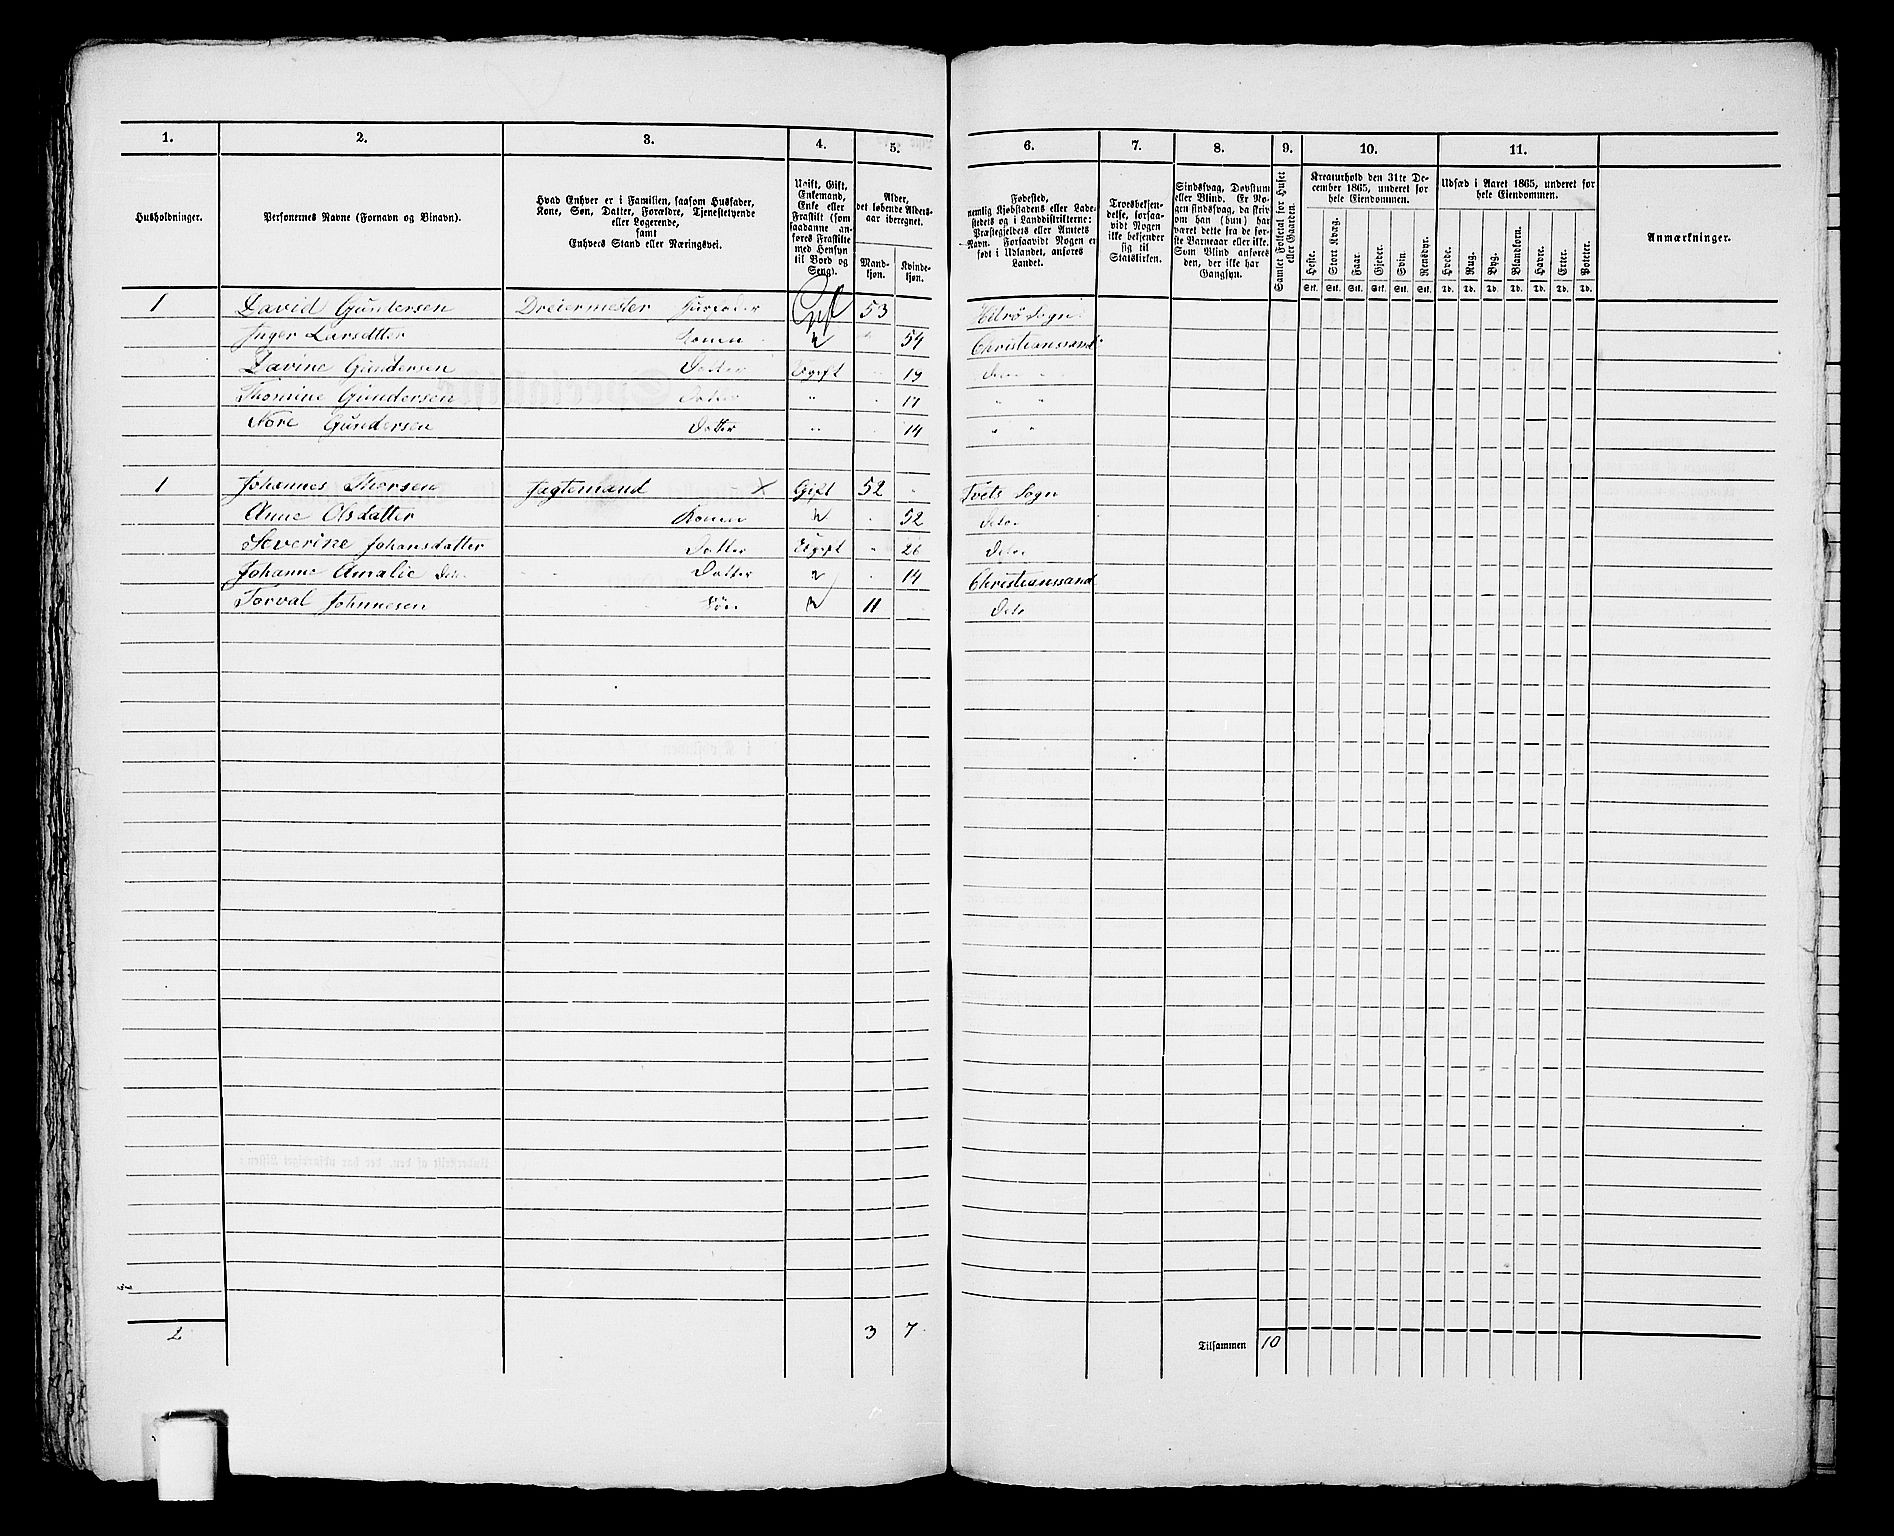 1. 2. 3. 4. 5. 6. 7. 8. 9. 10. 11.
Husholdninger.
Personernes Navne (Fornavn og Binavn).
Hvad Enhver er i Familien, saasom Husfader,
Kone, Søn, Datter, Forældre, Tjenestetyende
eller Logerende,
samt
Enhvers Stand eller Næringsvei.
Ugift, Gift,
Enkemand,
Enke eller
Fraskilt (som
saadanne an-
føres Fraskilte
med Hensyn
til Bord og
Seng).
Alder,
det løbende Alders-
aar iberegnet.
Mand-
kjøn.
Kvinde-
kjøn.
Fødested,
nemlig Kjøbstadens eller Lade-
stedets og i Landdistrikterne:
Præstegjeldets eller Amtets
Navn. Forsaavidt Nogen er
født i Udlandet, anføres
Landet.
Troesbekjen-
delse, forsaa-
vidt Nogen
ikke bekjender
sig til
Statskirken.
Sindssvag, Døvstum
eller Blind. Er No-
gen sindssvag, da skriv
om han (hun) har
været dette fra de før-
ste Barneaar eller ikke.
Som Blind ansøres
den, der ikke har
Gangsyn.
Samlet Folketal for Huset
eller Gaarden.
Kreaturhold den 31te De-
cember 1865, underet for
hele Eiendommen.
Heste. Stort Kvæg. Faar. Gjeder. Svin. Rensdyr.
Stk. Stk. Stk. Stk. Stk. Stk.
Udsæd i Aaret 1865, underet for
hele Eiendommen.
Hvede. Rug. Byg. Blandkorn. Havre. Erter. Poteter.
Td. Td. Td. Td. Td. Td. Td.
Anmærkninger.
1 David Gundersen Dreiermester Husfader Gift 53 Hitrø Sogn
Inger Larsdtter Konen " 54 Christianssand
Davine Gundersen Datter Ugift 19 Dito
Thomine Gundersen Datter " 17 " "
Tore Gundersen Datter " 14 " "
1 Johannes Thorsen Jagtemand X Gift 52 Tvets Sogn
Anne Olsdatter Konen " 52 Dito
Severine Johansdatter Datter Ugift 26 Dito
Johanne Amalie Dito Datter " 14 Christianssand
Torval Johnnesen Søn " 11 Dito
2 3 7 Tilsammen 10